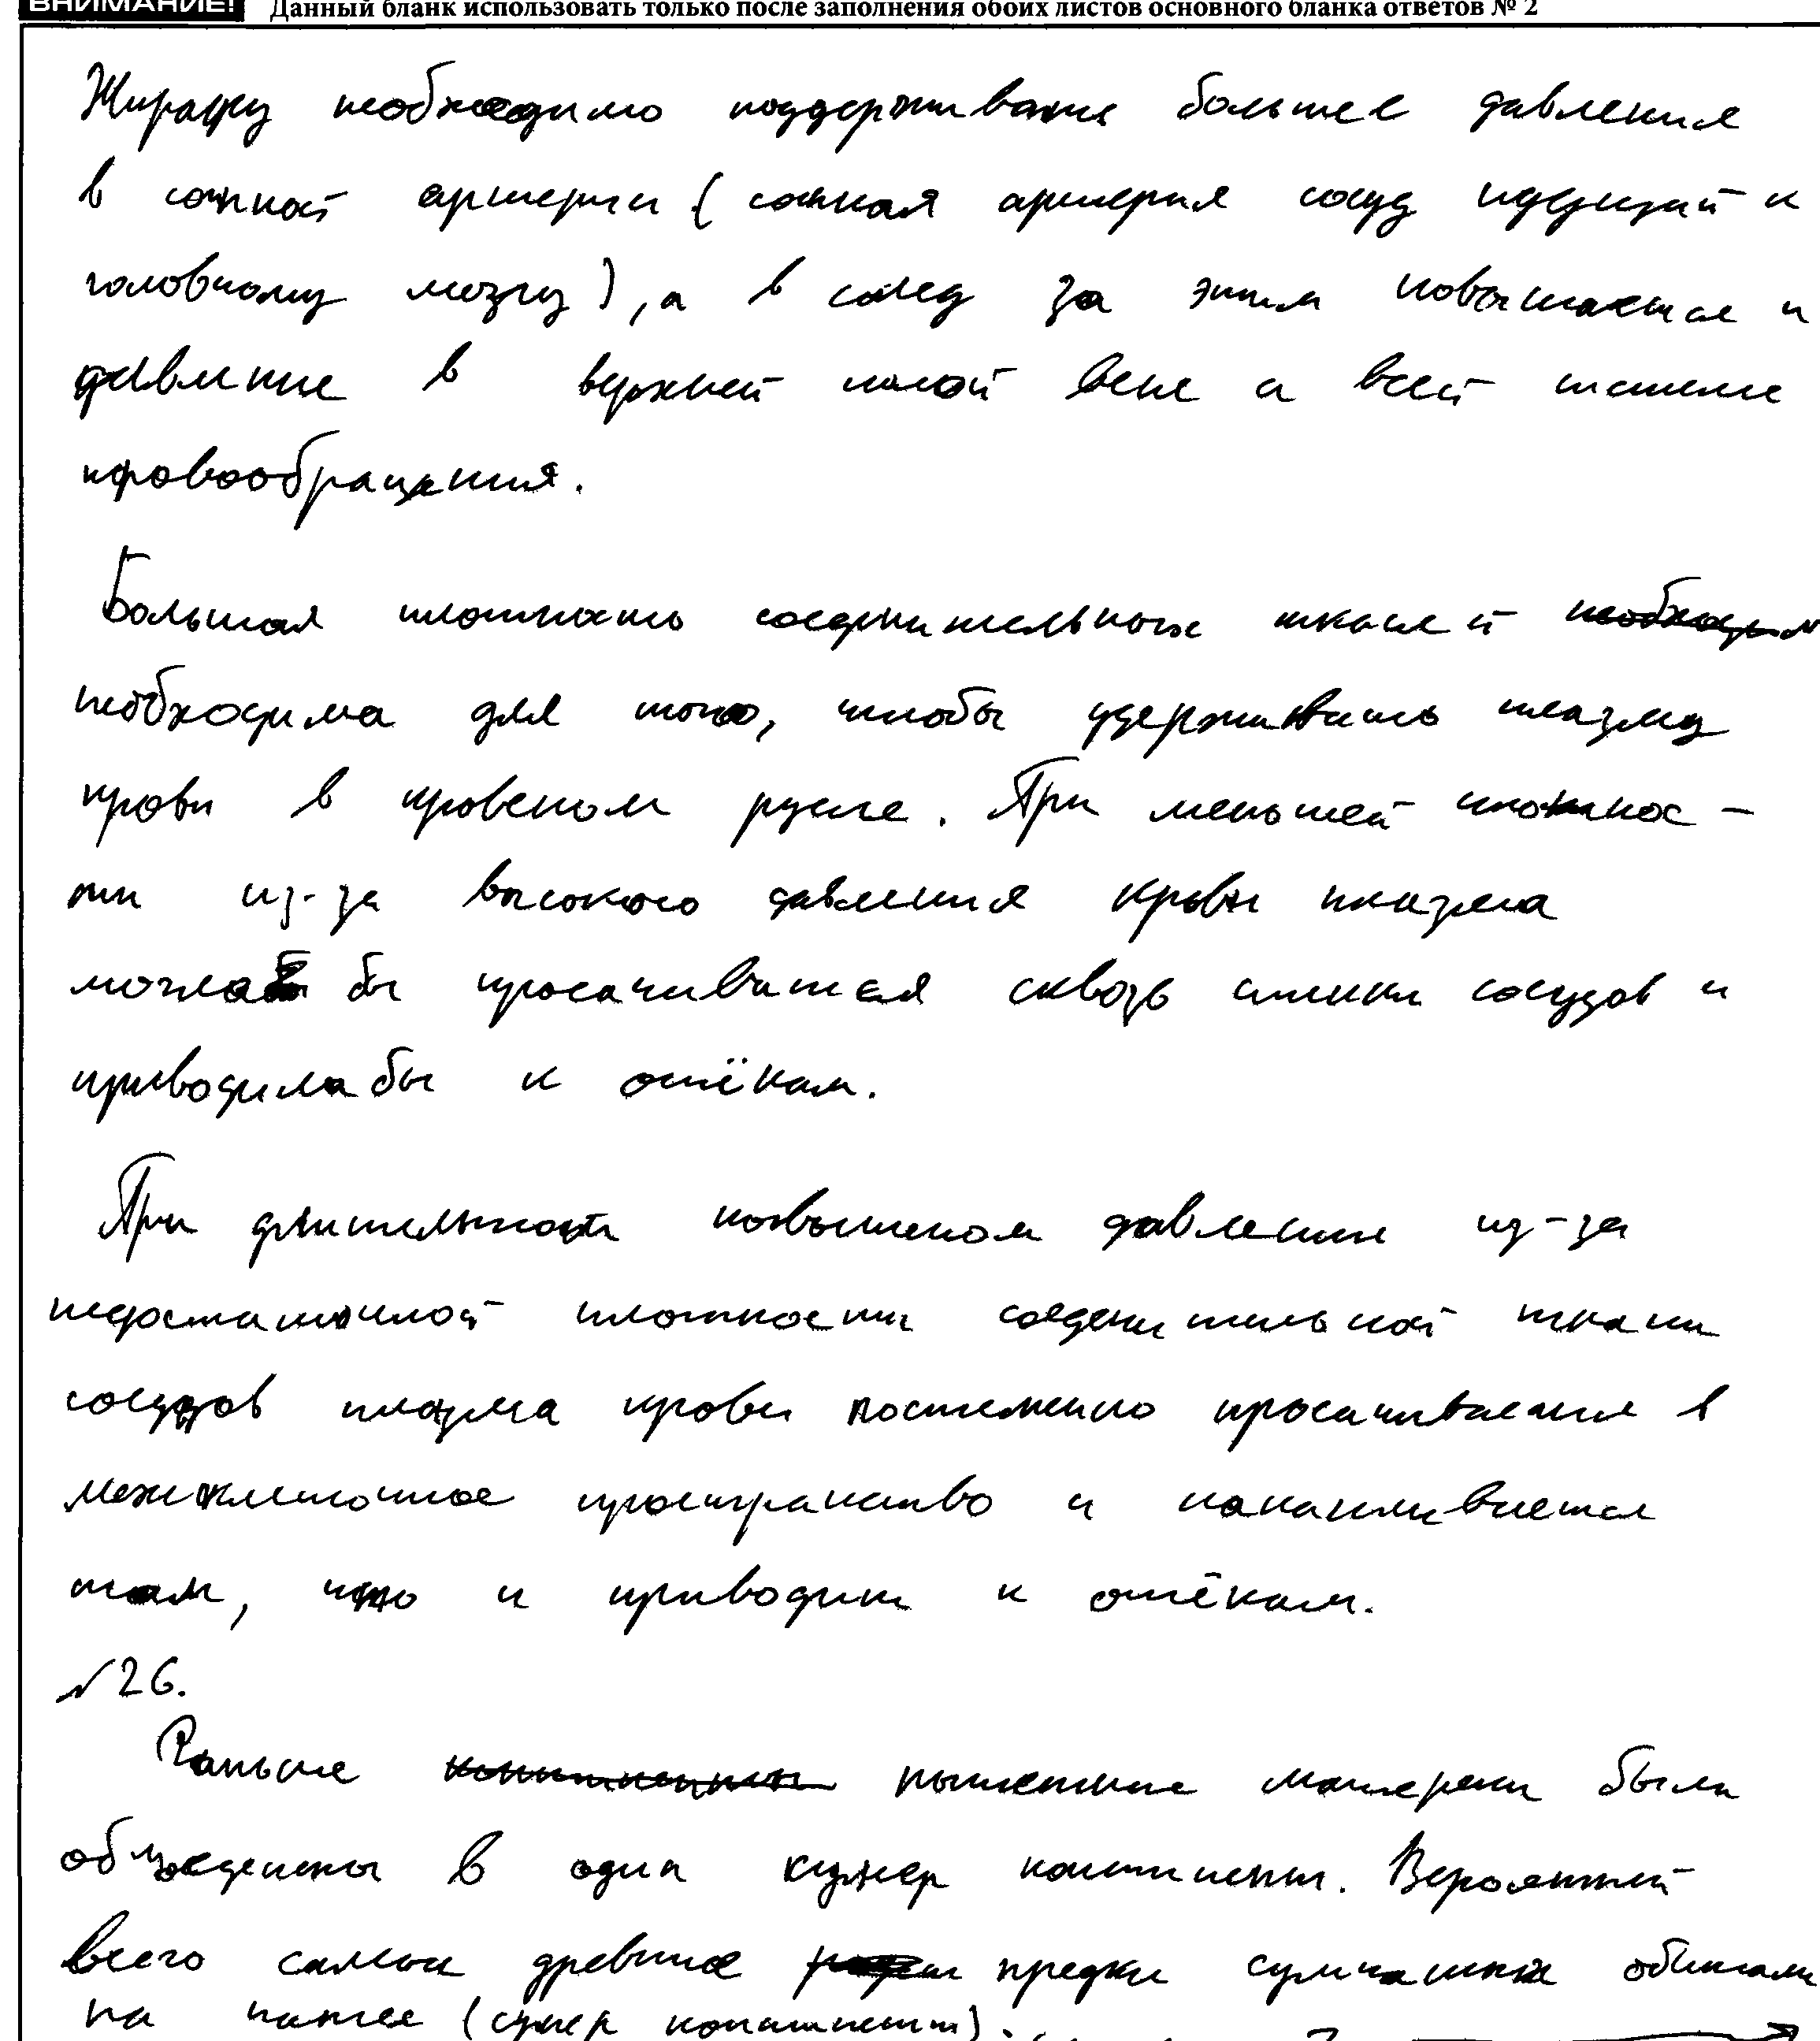 ВНИМАНИЕ! Данный бланк использовать только после заполнения обоих листов основного бланка ответов № 2
Жирафу необходимо поддерживание большее давления
в сонной артерии (сонная артерия сосуд идущий к
головному мозгу), а в след за этим повышается и
давление в верхней полой вене и всей системе
кровообращения.
Большая плотность соединительных тканей необходим
необходима для того, чтобы удерживать плазму
крови в кровеном русле. При меньшей плотнос-
ти из-за высокого давления крови плазма
могла бы просачиваться сквозь стенки сосудов и
приводила бы к отёкам.
При длительном повышеном давлении из-за
недостаточной плотности соеденительной ткани
сосудов плазма крови постепенно просачивается в
межклеточное пространство и накапливается
там, что и приводит к отёкам.
№26.
Раньше континенты нынешние материки были
объедены в один супер континент. Вероятней
всего самые древние предки сумчатых обитали
на (супер континент).